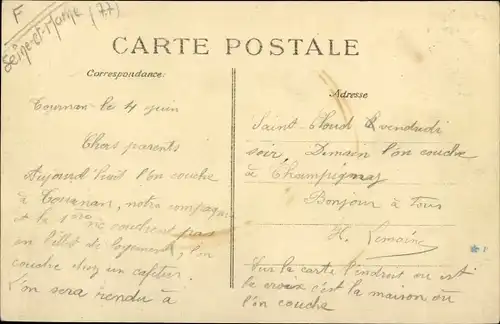 F
Seine-et-Marne (77)
CARTE POSTALE
Correspondance:
Adresse
Tournan le 4 juin
Chers parents
Aujourd huit l'on couche
à Tournan, notre compagnie
et la 1ère ne couchent pas
en billet de logement, l'on
couche chez un cafetier.
L'on sera rendu à
Saint-Cloud vendredi
soir, Demain l'on couche
à Champigny
Bonjour à tous
H. Lemaire
Sur la carte l'endroit ou est
la croix c'est la maison ou
l'on couche